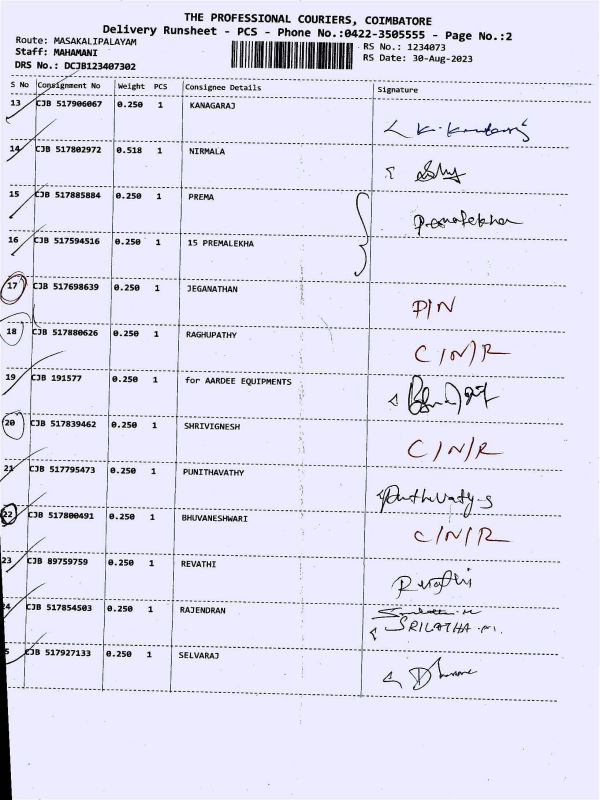 THE PROFESSIONAL COURIERS, COIMBATORE
Delivery Runsheet - PCS - Phone No.:0422-3505555 - Page No.:2
Route: MASAKALIPALAYAM RS No.: 1234073
Staff: MAHAMANI RS Date: 30-Aug-2023
DRS No.: DCJB123407302
S No Consignment No Weight PCS Consignee Details Signature
13 CJB 517906067 0.250 1 KANAGARAJ
14 CJB 517802972 0.518 1 NIRMALA
15 CJB 517885884 0.250 1 PREMA
16 CJB 517594516 0.250 1 15 PREMALEKHA
17 CJB 517698639 0.250 1 JEGANATHAN D/N
18 CJB 517880626 0.250 1 RAGHUPATHY C/N/R
19 CJB 191577 0.250 1 for AARDEE EQUIPMENTS
20 CJB 517839462 0.250 1 SHRIVIGNESH C/N/R
21 CJB 517795473 0.250 1 PUNITHAVATHY
22 CJB 517800491 0.250 1 BHUVANESHWARI C/N/R
23 CJB 89759759 0.250 1 REVATHI Revathi
24 CJB 517854503 0.250 1 RAJENDRAN SRILATHA .M.
5 CJB 517927133 0.250 1 SELVARAJ